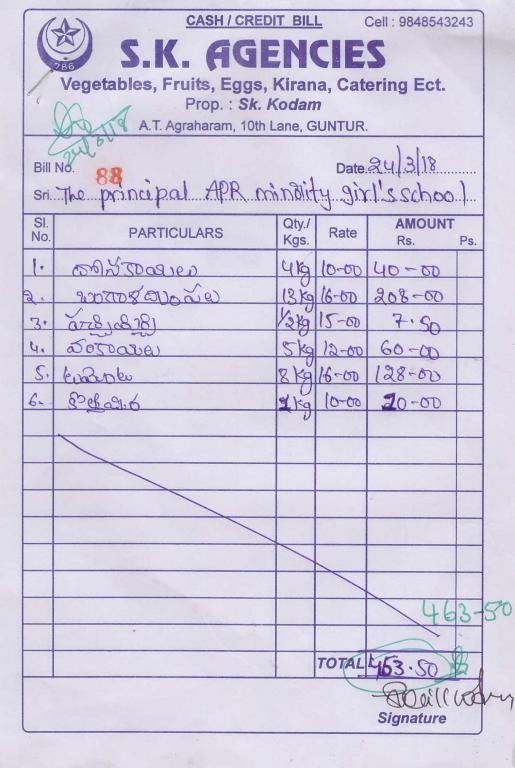 CASH / CREDIT BILL Cell : 9848543243
786
S.K. AGENCIES
Vegetables, Fruits, Eggs, Kirana, Catering Ect.
Prop. : Sk. Kodam
A.T. Agraharam, 10th Lane, GUNTUR.
24/3/18
Bill No. 88 Date 24/3/18
Sri. The principal APR minority girl's school
Sl. No. PARTICULARS Qty./ Kgs. Rate AMOUNT Rs. Ps.
1. దోసకాయలు 4 kg 10-00 40-00
2. బంగాళదుంపలు 13 kg 16-00 208-00
3. పచ్చిమిర్చి 1/2 kg 15-00 7.50
4. వంకాయలు 5 kg 12-00 60-00
5. 8 kg 16-00 128-00
6. కొత్తిమీర 2 kg 10-00 20-00
463-50
TOTAL 463.50
Signature